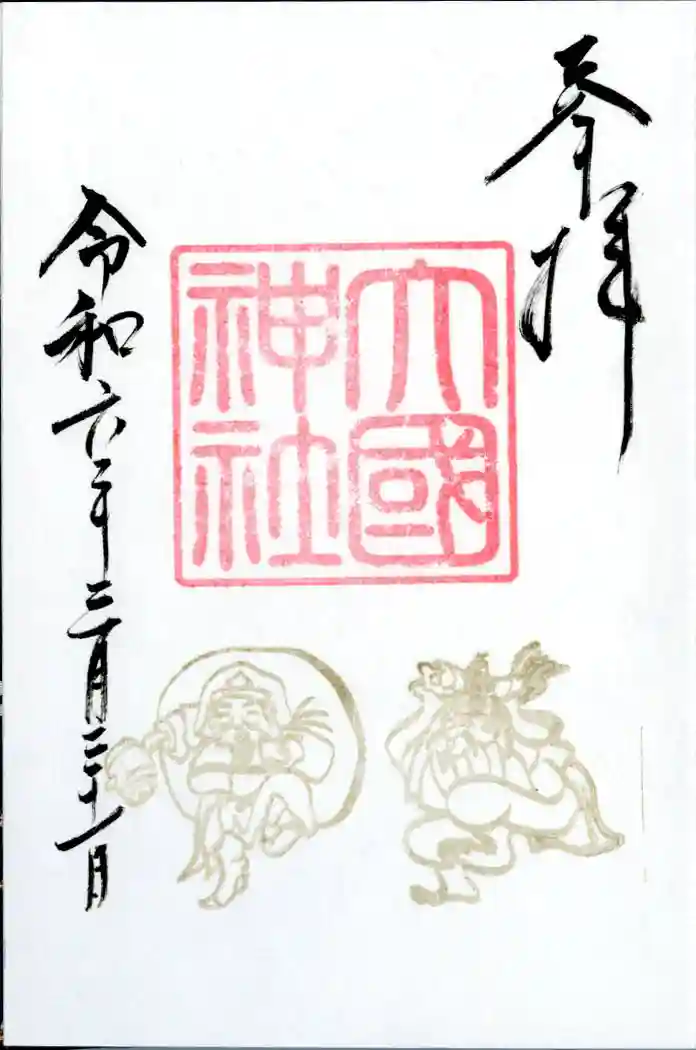 奉拝
大國
神社
令和六年三月三十一日